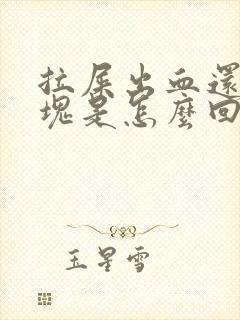 拉屎出血還
塊是怎麼回
玉星雪